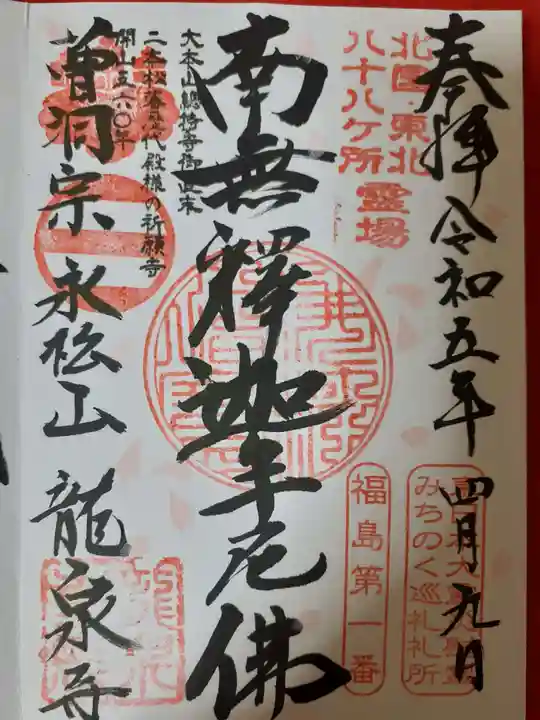 奉拝 令和五年 四月九日
北国・東北
八十八ケ所
霊場
みちのく巡礼札所
福島第一番
南無釋迦牟尼佛
大本山總持寺御直末
二本松藩歴代殿様の祈願寺
開山五六〇年
曹洞宗 永松山 龍泉寺